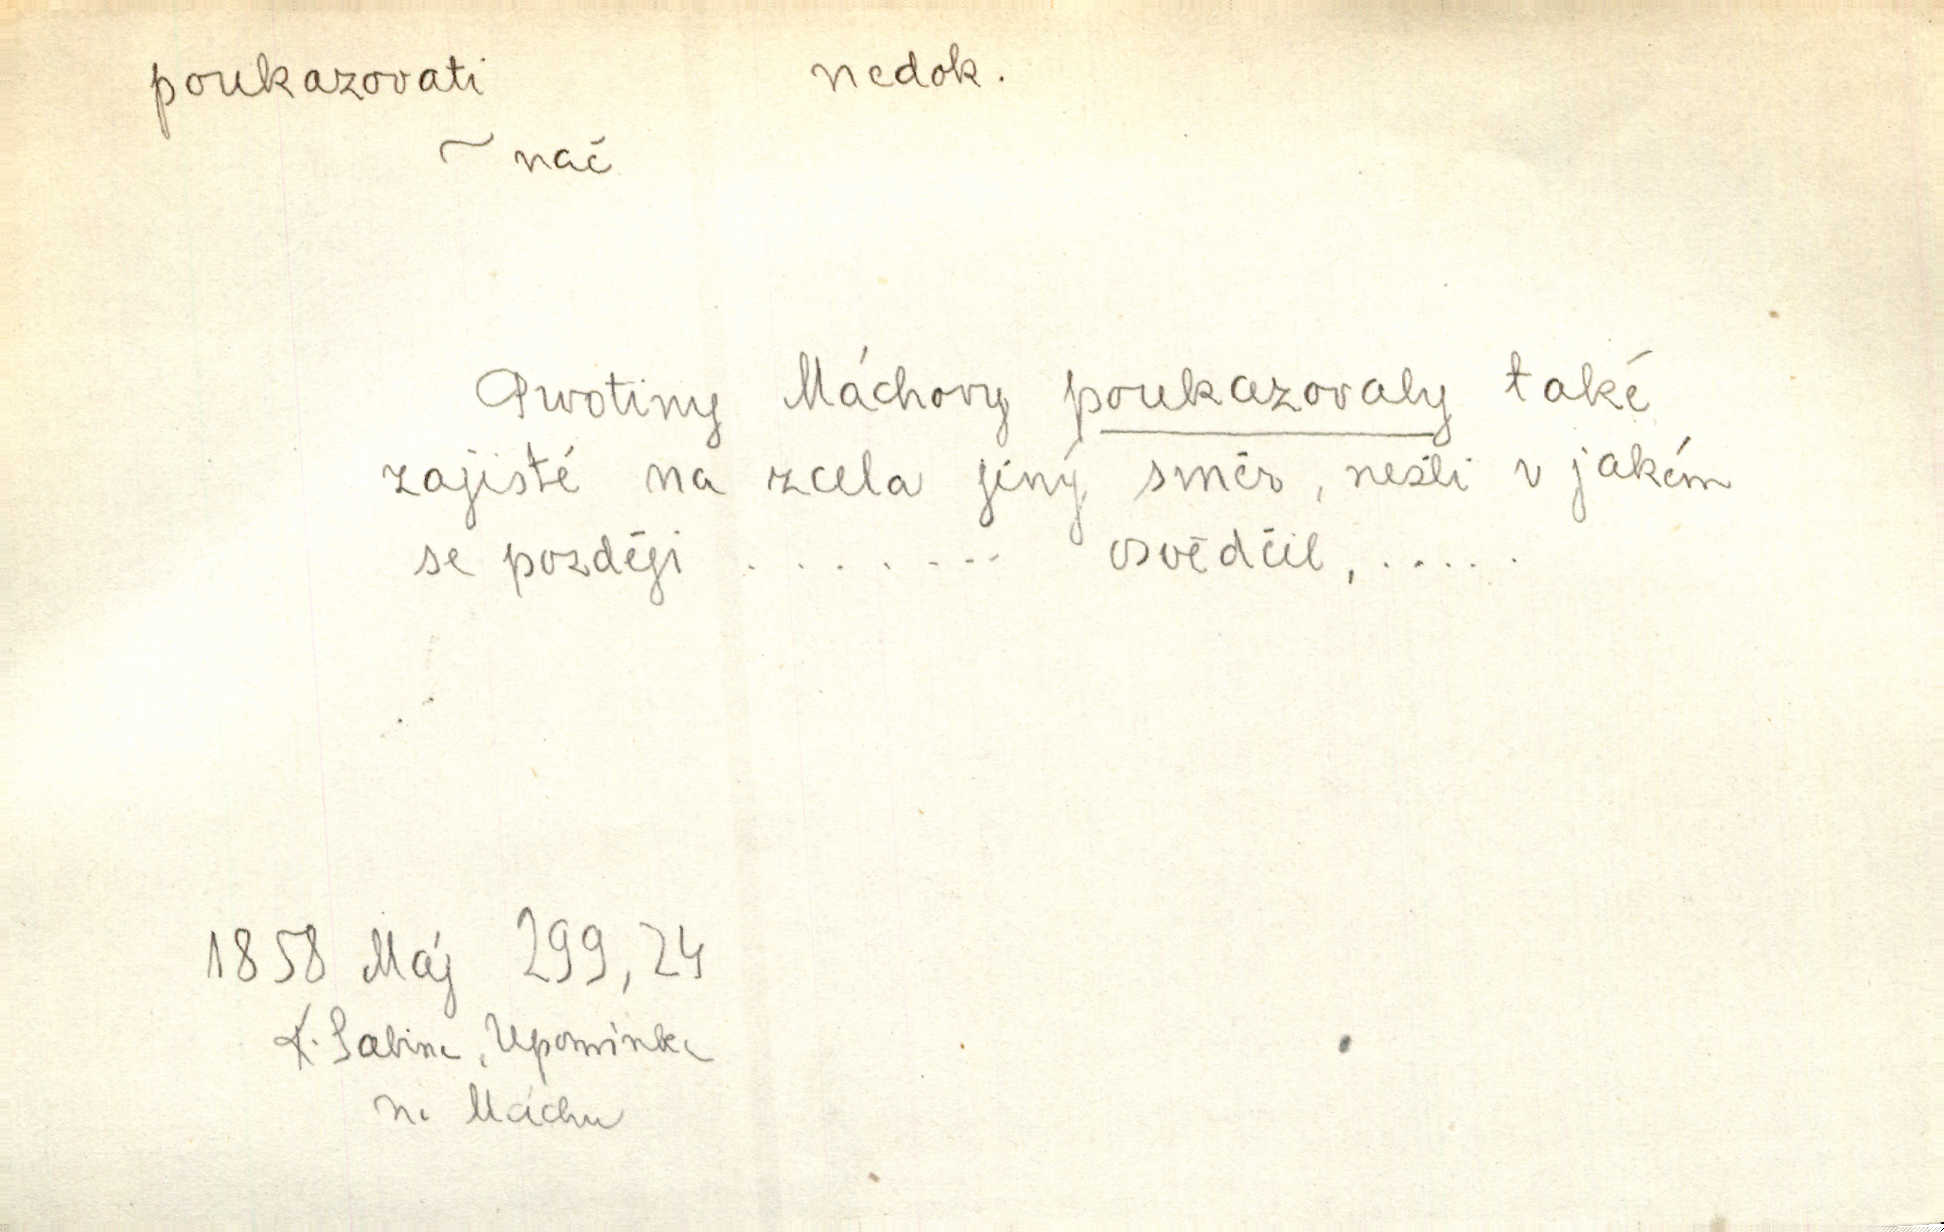 poukazovati nedok.
~ nač
Prvotiny Máchovy poukazovaly také
zajisté na zcela jiný směr, nežli v jakém
se později . . . . . . . . osvědčil, . . . . .
1858 Máj 299,24
K. Sabina, Upomínka
na Máchu